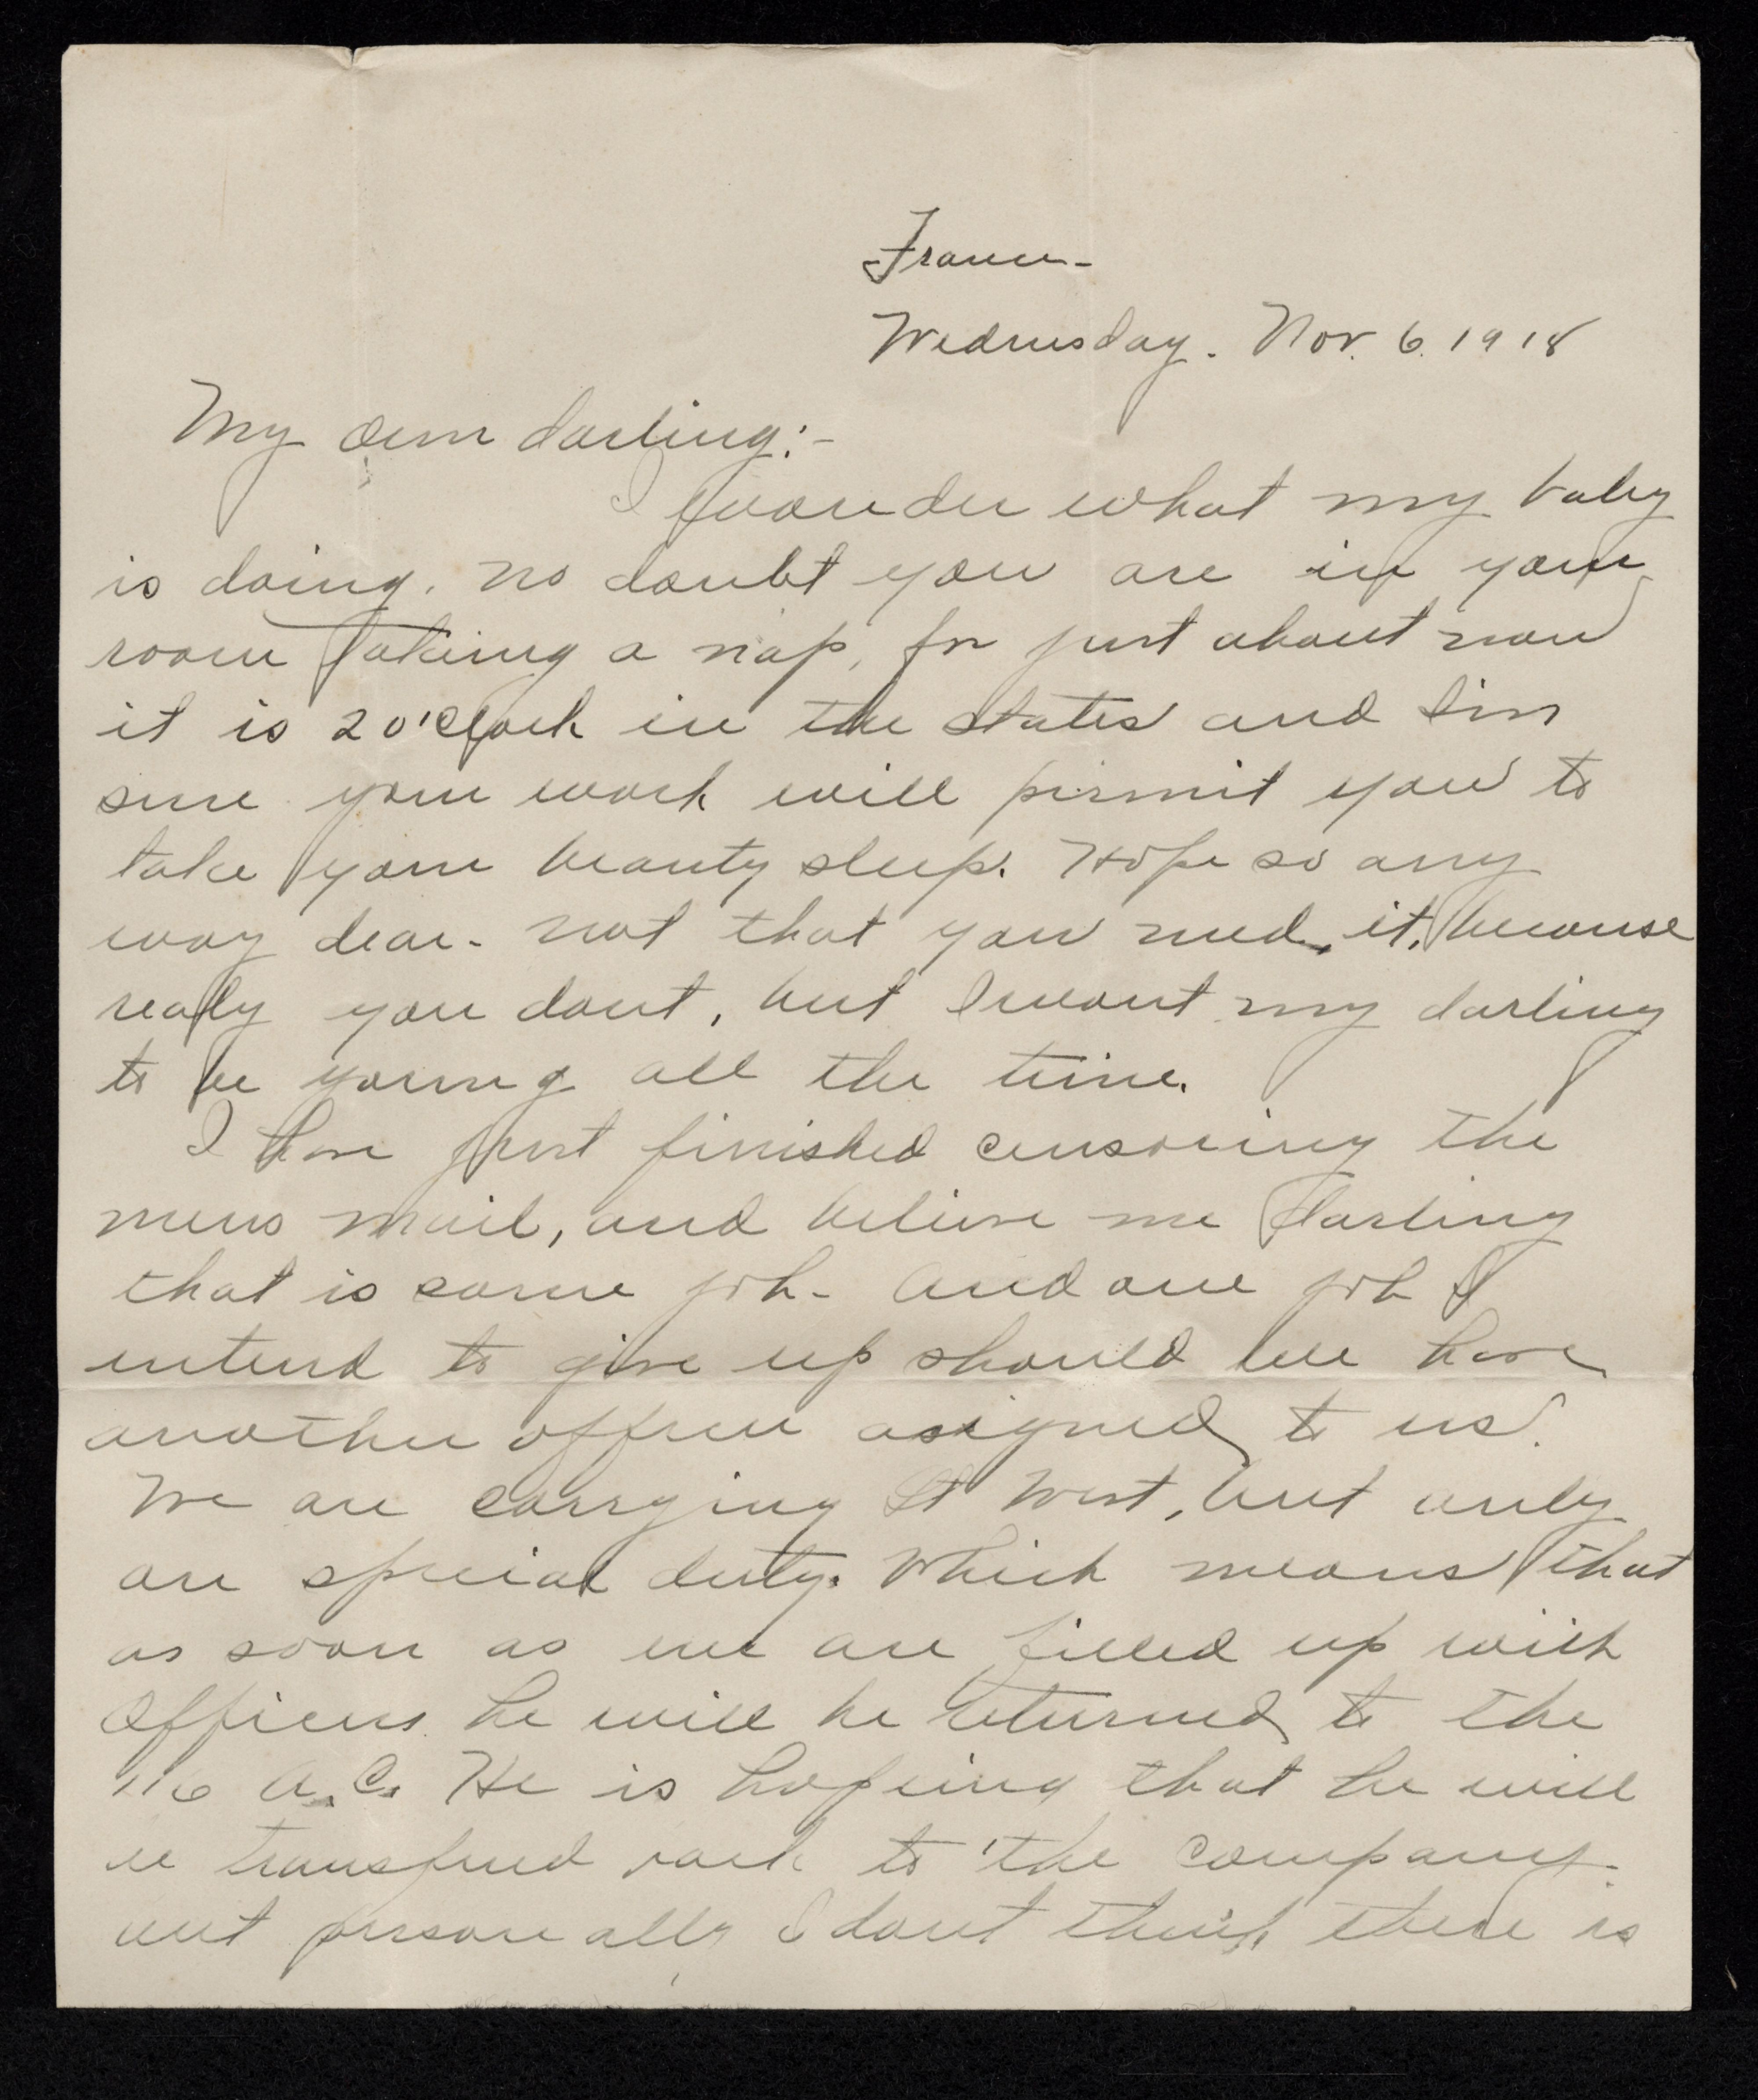 France-
Wednesday. Nov. 6. 1918
My own darling:-
I wonder what my baby
is doing. No doubt you are in your
room taking a nap, for just about now
it is 2 o'clock in the states and I'm
sure your work will permit you to
take your beauty sleep. Hope so any
way dear- not that you need it, because
really you dont, but I want my darling
to be young all the time.
I have just finished censoring the
mens mail, and believe me darling
that is some job- And one job I
intend to give up should we have
another officer assigned to us.
We are carrying Lt West, but only
on special duty. Which means that
as soon as we are filled up with
Officers he will be returned to the
116 A.C. He is hopeing that he will
be transfered back to the company-
but personally I dont think there is